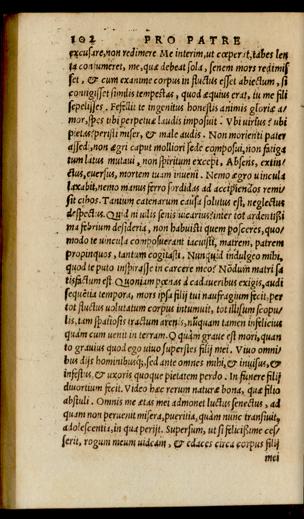 102 PRO PATRE
excusare, non redimere Me interim, ut cœperat, tabes len
ta consumeret, me, quæ debeat sola, senem mors redimis
set, & cum exanime corpus in fluctus esset abiectum, si
contigisset similis tempestas, quod æquius erat, tu me fili
sepelisses. Fefellit te ingenitus honestis animis gloriæ a/
mor, spes ubi perpetuæ laudis imposuit. Vbi uirtus? ubi
pietas? peristi miser, & male audis. Non morienti pater
assedi, non ægri caput molliori sede composui, non fatiga
tum latus mutaui, non spiritum excepi, Absens, extin/
ctus, euersus, mortem tuam inueni. Nemo ægro uincula
laxabit, nemo manus ferro sordidas ad accipiendos remi/
sit cibos. Tantum catenarum causa solutus est, neglectus
despectus. Quid ni uilis senis uicarius? inter tot ardentissi
ma febrium desideria, non habuisti quem posceres, quo/
modo te uincula composuerant iacuisti, matrem, patrem
propinquos, tantum cogitasti. Nunquid indulgeo mihi,
quod te puto inspirasse in carcere meo? Nõdum matri sa
tisfactum est Quoniam pœnas à cadaueribus exigis, audi
sequẽtia tempora, mors ipsa filij tui naufragium fecit, per
tot fluctus uolutatum corpus intumuit, tot illisum scopu/
lis, tam spatiosis tractum arenis, nũquam tamen infelicius
quàm cum uenit in terram. O quàm graue est mori, quan
to grauius quod ego uiuo superstes filij mei. Viuo omni/
bus dijs hominibusq;, sed ante omnes mihi, & inuisus, &
infestus, & uxoris quoque pietatem perdo. In funere filij
diuortium fecit. Video hæc rerum naturæ bona, quæ filio
abstuli. Omnis me ætas mei admonet luctus senectus, ad
quam non peruenit misera, pueritia, quàm nunc transiuit,
adolescentia, in qua perijt. Supersum, ut si felicissime ces/
serit, rogum meum uideam, & edaces circa corpus filij
mei